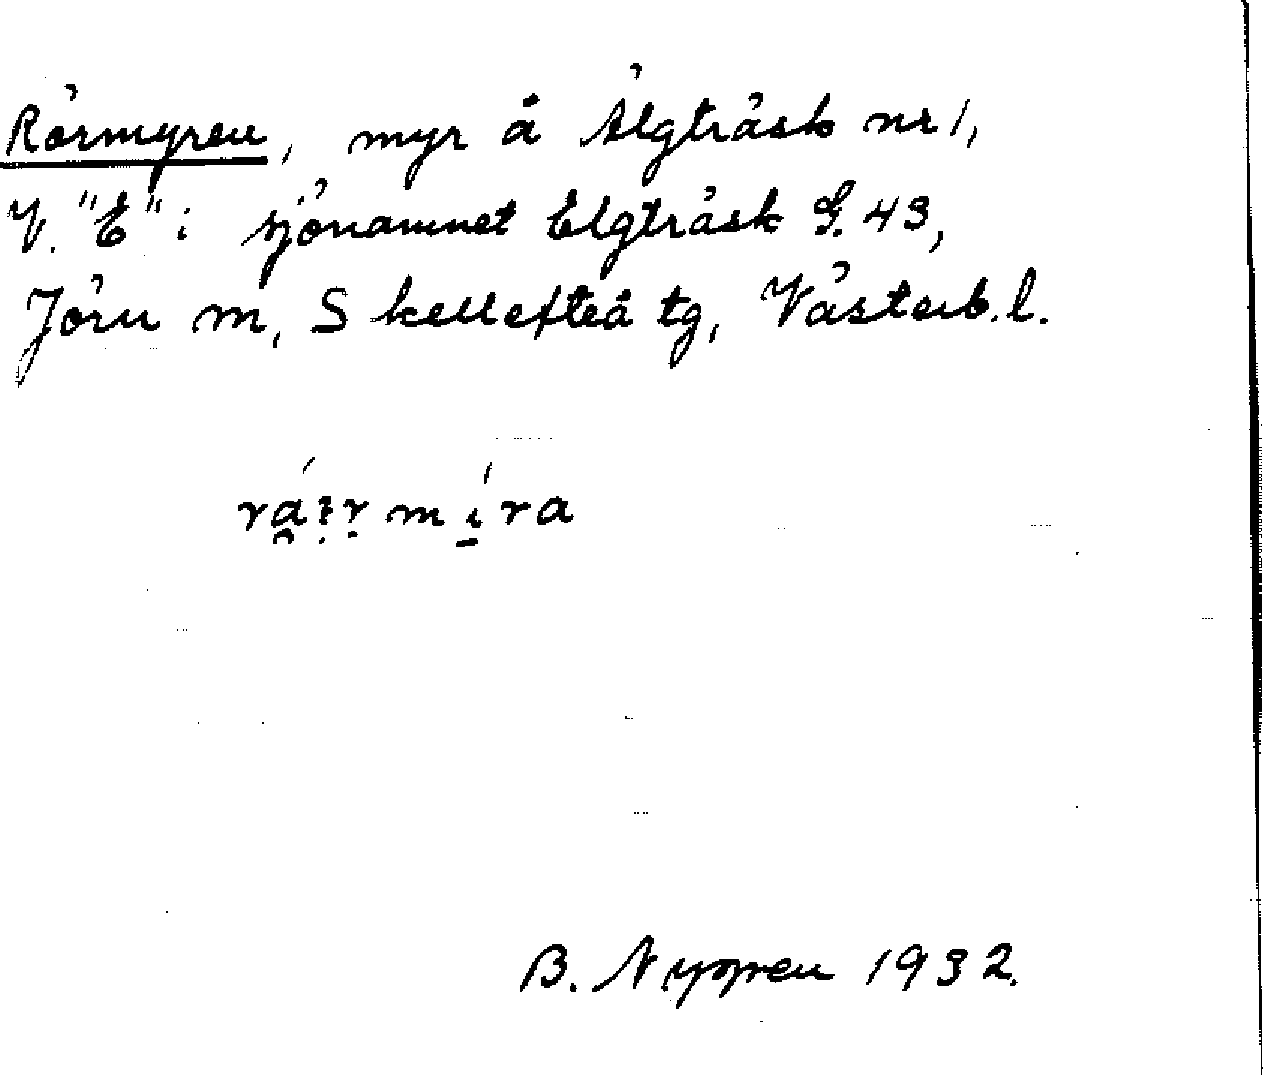 Rörmyren, myr å Älgträsk nr 1,
V. "E" i sjönamnet Elgträsk G. 43,
Jörn sn, Skellefteå tg, Västerb. l.
B. Nygren 1932.